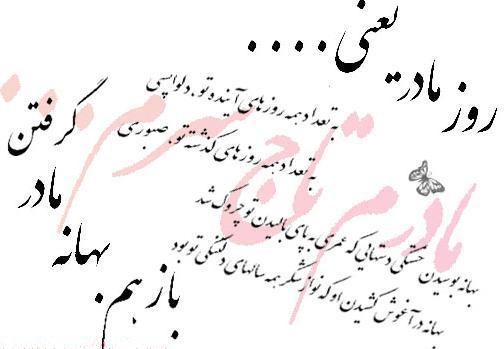 روز مادر یعنی ....
به تعداد همه روزهای آینده تو، دلواپسی
به تعداد همه روزهای گذشته تو، صبوری
مادرم تاج سرم ...
بهانه بوسیدن خستگی دستهایی که عمری به پای بالیدن تو چروک شد
بهانه در آغوش کشیدن او که نوازشگر همه سالهای دلتنگی تو بود
باز هم
بهانه
مادر
گرفتن